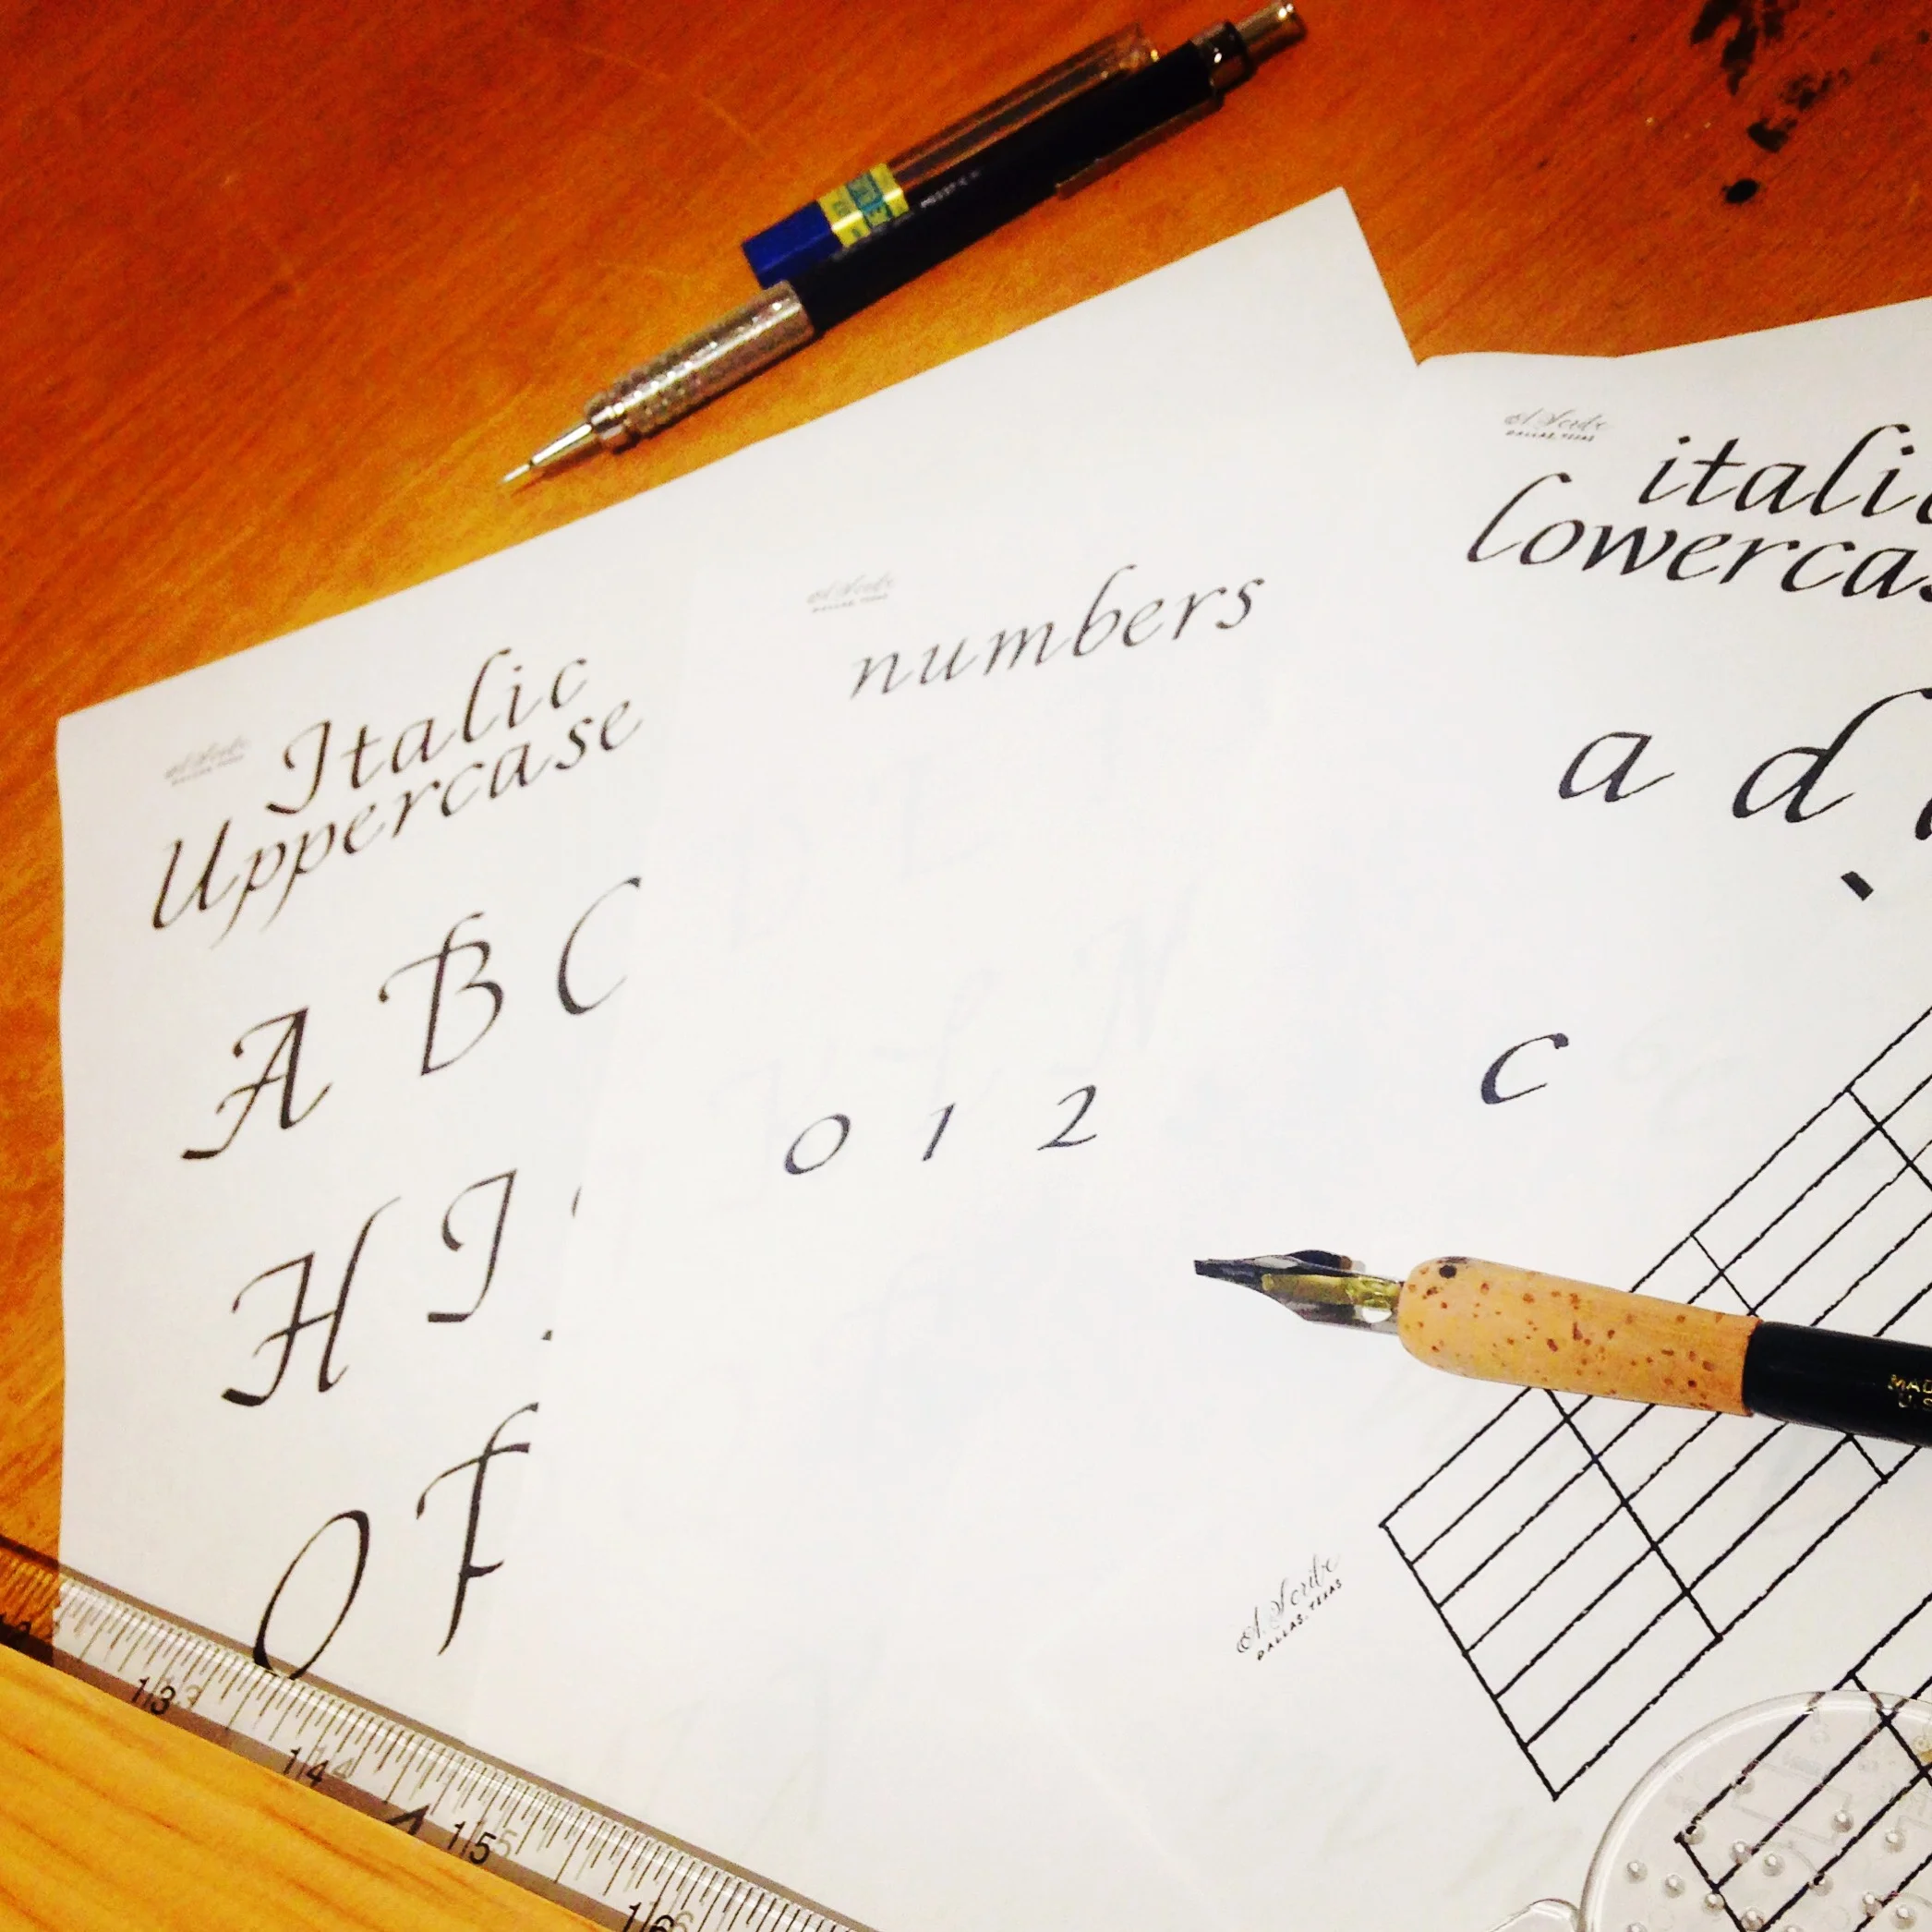 Italic
Uppercase
A B C
H I
O P
A. Scribe
DALLAS, TEXAS
numbers
0 1 2
A. Scribe
DALLAS, TEXAS
itali
lowercas
a d
c
A. Scribe
DALLAS, TEXAS
A. Scribe
DALLAS, TEXAS
MAD
U.S
13
14
15
16